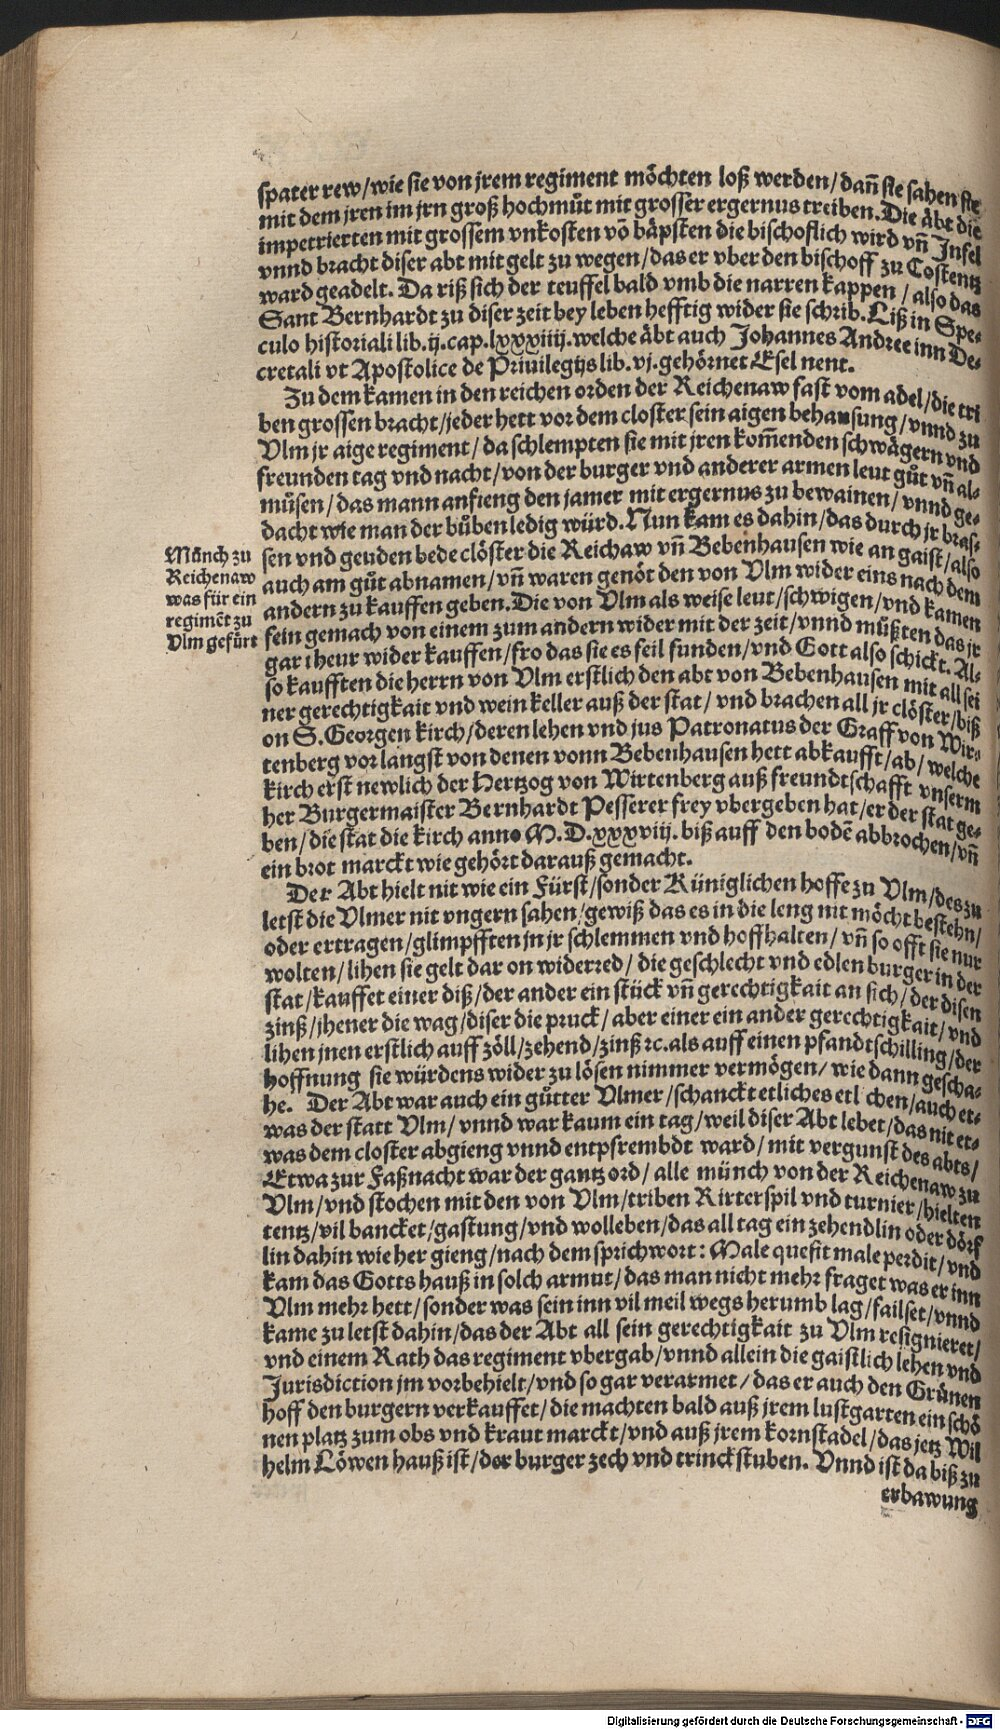 spater rew/wie sie von jrem regiment möchten loß werden/dañ sie sahen sie
mit dem jren im jrn groß hochmůt mit grosser ergernus treiben. Die äbt die
impetrierten mit grossem vnkosten võ bäpsten die bischoflich wird vñ Insel
vnnd bracht diser abt mit gelt zu wegen/das er vber den bischoff zu Costentz
ward geadelt. Da riß sich der teuffel bald vmb die narren kappen/also das
Sant Bernhardt zu diser zeit bey leben hefftig wider sie schrib. Liß in Spe-
culo historiali lib.ij.cap.lxxxiiij.welche äbt auch Johannes Andree inn De-
cretali vt Apostolice de Priuilegijs lib.vj.gehörnet Esel nent.
Zu dem kamen in den reichen orden der Reichenaw fast vom adel/die tri
ben grossen bracht/jeder hett vor dem closter sein aigen behausung/vnnd zu
Vlm jr aige regiment/da schlempten sie mit jren kom̃enden schwägern vnd
freunden tag vnd nacht/von der burger vnd anderer armen leut gůt vñ al-
můsen/das mann anfieng den jamer mit ergernus zu bewainen/vnnd ge-
dacht wie man der bůben ledig würd. Nun kam es dahin/das durch jr bras-
sen vnd geuden bede clöster die Reichaw vñ Bebenhausen wie an gaist/also
auch am gůt abnamen/vñ waren genöt den von Vlm wider eins nach dem
andern zu kauffen geben. Die von Vlm als weise leut/schwigen/vnd kamen
fein gemach von einem zum andern wider mit der zeit/vnnd můßten das jr
gar theur wider kauffen/fro das sie es feil funden/vnd Gott also schickt. Al-
so kaufften die herrn von Vlm erstlich den abt von Bebenhausen mit all sei
ner gerechtigkait vnd wein keller auß der stat/vnd brachen all jr clöster/biß
on S. Georgen kirch/deren lehen vnd jus Patronatus der Graff von Wir-
tenberg vor längst von denen vonn Bebenhausen hett abkaufft/ab/welche
kirch erst newlich der Hertzog von Wirtenberg auß freundtschafft vnserm
her Burgermaister Bernhardt Pesserer frey vbergeben hat/er der stat ge-
ben/die stat die kirch anno M.D.xxxviij. biß auff den bodẽ abbrochen/vñ
ein brot marckt wie gehört darauß gemacht.
Münch zu
Reichenaw
was für ein
regimẽt zu
Vlm gefürt
Der Abt hielt nit wie ein Fürst/sonder Küniglichen hoffe zu Vlm/des zu
letst die Vlmer nit vngern sahen/gewiß das es in die leng nit möcht bestehn/
oder ertragen/glimpfften jn jr schlemmen vnd hoffhalten/vñ so offt sie nur
wolten/lihen sie gelt dar on widerred/die geschlecht vnd edlen burger in der
stat/kauffet einer diß/der ander ein stück vñ gerechtigkait an sich/der disen
zinß/jhener die wag/diser die pruck/aber einer ein ander gerechtigkait/vnd
lihen jnen erstlich auff zöll/zehend/zinß ꝛc.als auff einen pfandtschilling/der
hoffnung sie würdens wider zu lösen nimmer vermögen/wie dann gescha-
he. Der Abt war auch ein gůtter Vlmer/schanckt etliches etlichen/auch et-
was der statt Vlm/vnnd war kaum ein tag/weil diser Abt lebet/das nit et-
was dem closter abgieng vnnd entpfrembdt ward/mit vergunst des abts/
Etwa zur Faßnacht war der gantz ord/alle münch von der Reichenaw zu
Vlm/vnd stochen mit den von Vlm/triben Ritterspil vnd turnier/hielten
tentz/vil bancket/gastung/vnd wolleben/das all tag ein zehendlin oder dörf
lin dahin wie her gieng/nach dem sprichwort: Male quesit male perdit/vnd
kam das Gotts hauß in solch armut/das man nicht mehr fraget was er inn
Vlm mehr hett/sonder was sein inn vil meil wegs herumb lag/failset/vnnd
kame zu letst dahin/das der Abt all sein gerechtigkait zu Vlm resignieret/
vnd einem Rath das regiment vbergab/vnnd allein die gaistlich lehen vnd
Jurisdiction jm vorbehielt/vnd so gar verarmet/das er auch den Grůnen
hoff den burgern verkauffet/die machten bald auß jrem lustgarten ein schö
nen platz zum obs vnd kraut marckt/vnd auß jrem kornstadel/das jetz Wil
helm Löwen hauß ist/der burger zech vnd trinckstuben. Vnnd ist da biß zu
erbawung
Digitalisierung gefördert durch die Deutsche Forschungsgemeinschaft - DFG